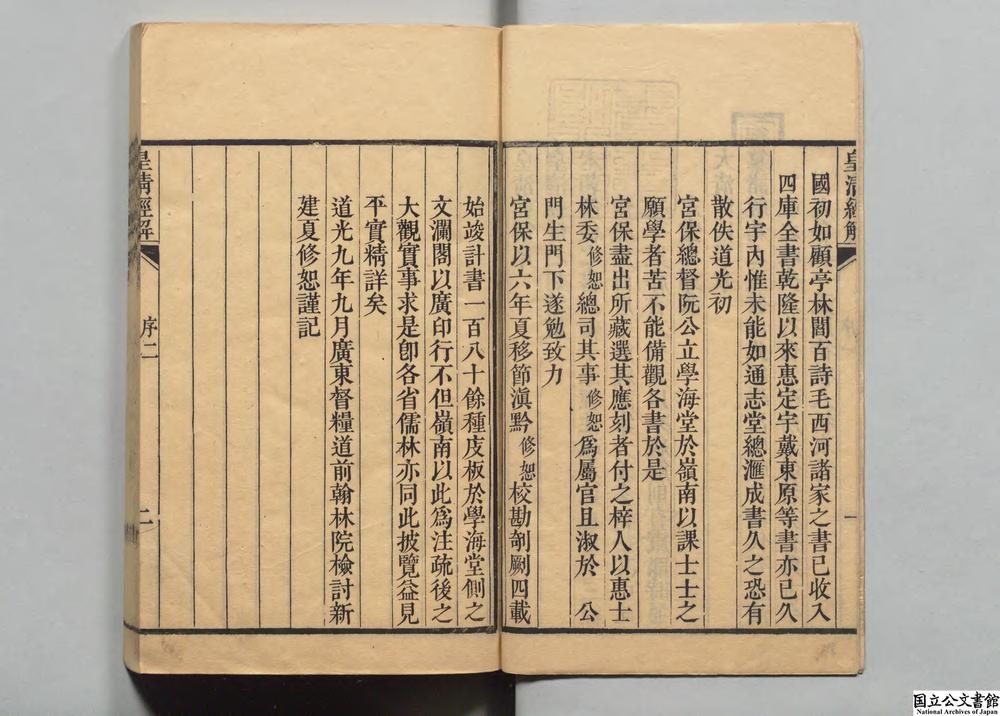 皇清經解
一
國初如顧亭林閻百詩毛西河諸家之書已收入
四庫全書乾隆以來惠定宇戴東原等書亦已久
行宇內惟未能如通志堂總滙成書久之恐有
散佚道光初
宮保總督阮公立學海堂於嶺南以課士士之
願學者苦不能備觀各書於是
宮保盡出所藏選其應刻者付之梓人以惠士
林委修恕總司其事修恕爲屬官且淑於 公
門生門下遂勉致力
宮保以六年夏移節滇黔修恕校勘剞劂四載
始竣計書一百八十餘種庋板於學海堂側之
文瀾閣以廣印行不但嶺南以此爲注疏後之
大觀實事求是卽各省儒林亦同此披覽益見
平實精詳矣
道光九年九月廣東督糧道前翰林院檢討新
建夏修恕謹記
皇清經解
序二
二
国立公文書館
National Archives of Japan